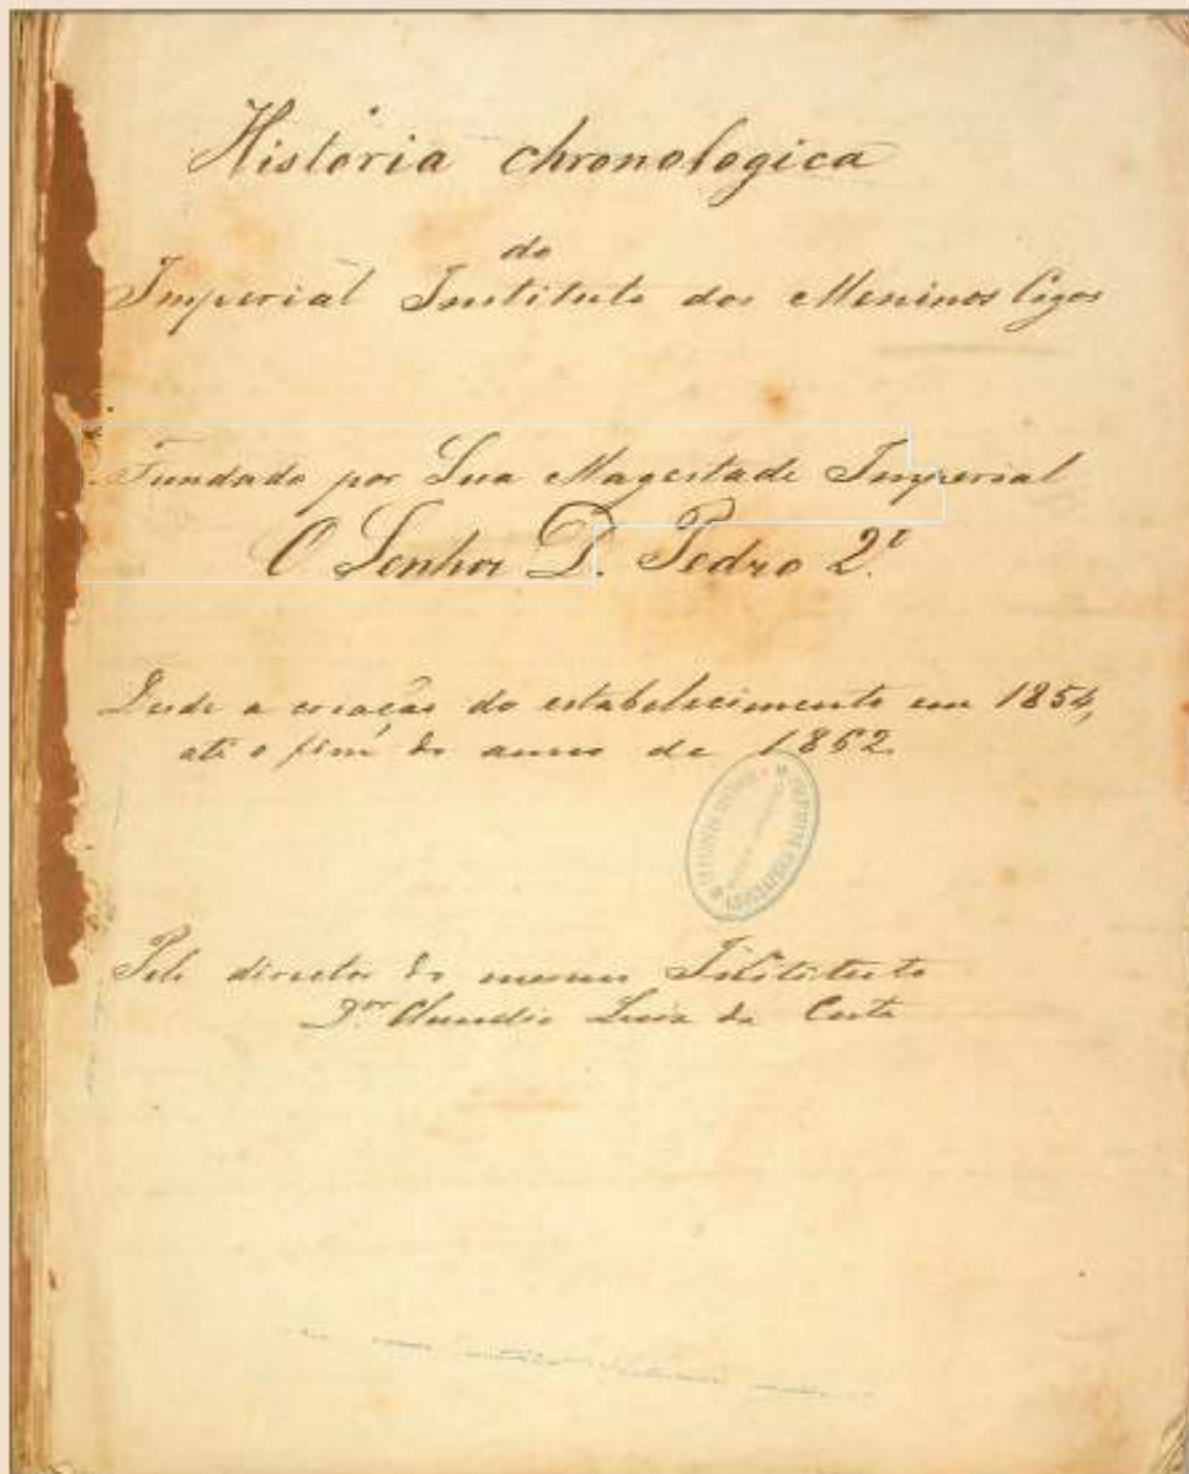 Historia chronologica
do
Imperial Instituto dos Meninos Cegos
Fundado por Sua Magestade Imperial
O Senhor D. Pedro 2º
Desde a creação do estabelecimento em 1854,
até o fim do anno de 1862
Pelo director do mesmo Instituto
Dor Claudio Luiz da Costa